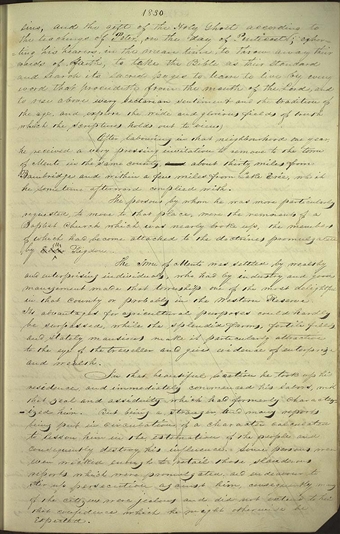 1830
sins, and the gift of the Holy Ghost according to
the teachings of Peter, on the day of Pentecost,
in the mean time to throw away their
creeds of faith, to take the Bible as their standard
and search its sacred pages to learn to live by every
word that proceedeth from the mouth of the Lord, and
to rise above every sectarian sentiment and the tradition of
the age, and explore the wide and glorious fields of truth
which the scriptures holds out to view.
After laboring in that neighborhood one year
he received a very pressing invitation to remove to the town
of Mentor in the same county, about thirty miles from
Bainbridge and within a few miles from Lake Erie, which
he sometime afterward complied with.
The persons by whom he was more particularly
requested to move to that place, were the remains of a
Baptist Church which was nearly broke up, the members
of which had become attached to the doctrines promulgated
by Rigdon
The Town of Mentor was settled by wealthy
and enterprising individuals, who had by industry and good
management made that township one of the most delightful
in that County or probably in the Western Reserve.
Its advantages for agricultural purposes could hardly
be surpassed, while the splendid farms, fertile fields
and stately mansions made it particularly attractive
to the eye of the traveller and gives evidence of enterprise
and wealth.
In that beautiful location he took up his
residence and immediately commenced his labors, with
that zeal and assiduity which had formerly character-
-ized him. But being a stranger and many reports
being put in circulation of a character calculated
to lessen him in the estimation of the people and
consequently destroy his influence. Some persons were
even wicked enough to retail those slanderous
reports which were promulgated, and endeavored
to persecution against him, consequently many
of the citizens were jealous and did not extend to him
that confidence which he might otherwise have
expected.